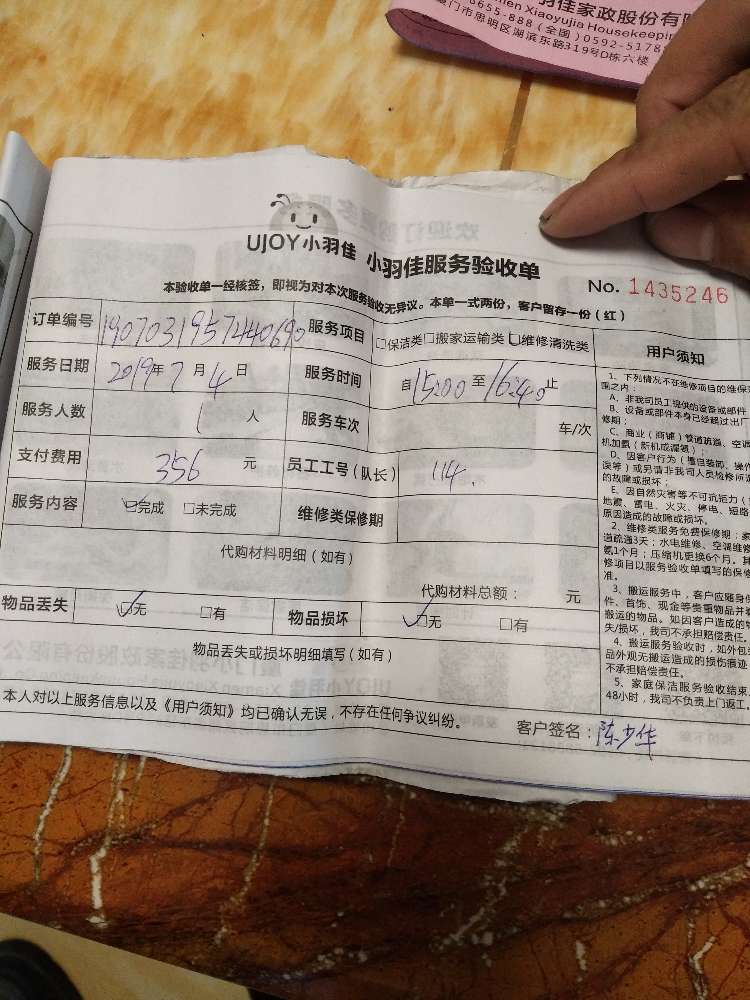 羽佳家政股份有限
men Xiaoyujia Housekeepin
8655-888（全国）0592-5178
厦门市思明区湖滨东路319号D栋六楼
UJOY小羽佳 小羽佳服务验收单
No. 1435246
本验收单一经核签，即视为对本次服务验收无异议。本单一式两份，客户留存一份（红）
订单编号 服务项目 □保洁类□搬家运输类☑维修清洗类 用户须知
服务日期 2019年7月4日 服务时间 自15:00至16:40止
服务人数 1人 服务车次 车/次
支付费用 356元 员工工号（队长） 114.
服务内容 ☑完成 □未完成 维修类保修期
代购材料明细（如有）
代购材料总额： 元
物品丢失 ☑无 □有 物品损坏 ☑无 □有
物品丢失或损坏明细填写（如有）
本人对以上服务信息以及《用户须知》均已确认无误，不存在任何争议纠纷。
客户签名：陈少华
1、下列情况不在维修项目的维保
围之内：
A、非我司员工提供的设备或部件
B、设备或部件本身已经超过出厂
修期；
C、商业（商铺）管道疏通、空调
机加氨（新机或漏氨）；
D、因客户行为（擅自装卸、操作
误等）或另请非我司人员检修所造
的故障或损坏；
E、因自然灾害等不可抗拒力（
地震、雷电、火灾、停电、短路
原因造成的故障或损坏。
2、维修类服务免费保修期：
道疏通3天；水电维修、空调维修
氨1个月；压缩机更换6个月。其
修项目以服务验收单填写的保修
准。
3、搬运服务中，客户应随身
件、首饰、现金等贵重物品并
搬运的物品。如因客户造成的
失/损坏，我司不承担赔偿责任。
4、搬运服务验收时，如外包
品外观无搬运造成的损伤痕迹
不承担赔偿责任。
5、家庭保洁服务验收结束
48小时，我司不负责上门返工。